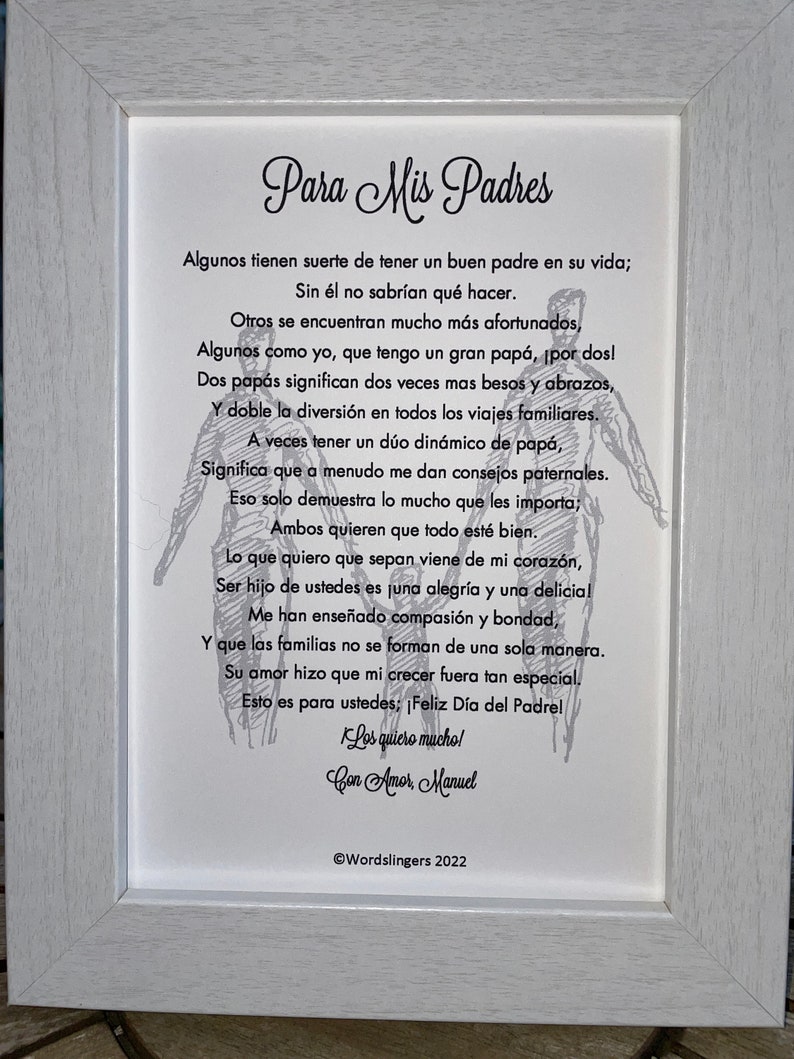 Para Mis Padres
Algunos tienen suerte de tener un buen padre en su vida;
Sin él no sabrían qué hacer.
Otros se encuentran mucho más afortunados,
Algunos como yo, que tengo un gran papá, ¡por dos!
Dos papás significan dos veces mas besos y abrazos,
Y doble la diversión en todos los viajes familiares.
A veces tener un dúo dinámico de papá,
Significa que a menudo me dan consejos paternales.
Eso solo demuestra lo mucho que les importa;
Ambos quieren que todo esté bien.
Lo que quiero que sepan viene de mi corazón,
Ser hijo de ustedes es ¡una alegría y una delicia!
Me han enseñado compasión y bondad,
Y que las familias no se forman de una sola manera.
Su amor hizo que mi crecer fuera tan especial.
Esto es para ustedes; ¡Feliz Día del Padre!
¡Los quiero mucho!
Con Amor, Manuel
©Wordslingers 2022